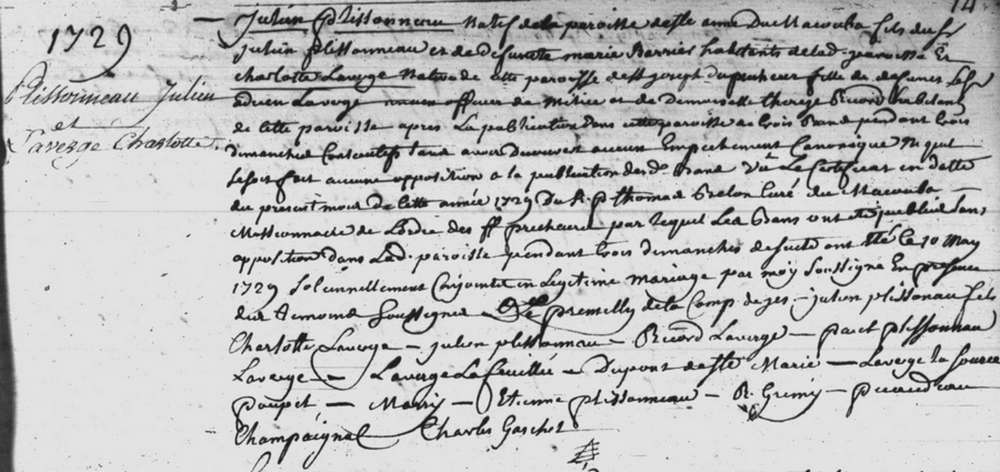 14.
1729
Plissonneau Julien
et
Laverge Charlotte.
— Julien Plissonneau natif de la paroisse de Ste anne du Macouba fils du Sr
julien plissonneau et de defuncte marie Barrier habitants de lad. paroisse Et
charlotte Laverge Native de cette paroisse de St joseph du precheur fille de defunct le Sr
adrien Laverge ancien officier de milice et de Demoiselle therese Ricord habitans
de cette paroisse apres La publication dans cette paroisse de trois Bans pendant trois
dimanches Consecutifs sans avoir decouvert aucun Empechement Canonique Ny quil
se soit fait aucune opposition a la publication des d. Bans Vû Le Certificat en datte
du present mois de cette année 1729 du R. p thomas Brelon Curé du Macouba
Missionnaire de Lordre des ff precheurs par lequel Les bans ont eté publiés sans
opposition dans Lad. paroisse pendant trois dimanches de suite ont été Ce 10 May
1729 Solennellement Conjoints en Legitime mariage par moy Soussigné En presence
des temoins Soussignés De premilly de la Comp. de jes. — julien plissonneau fils
Charlotte Laverge — julien plissonneau — Ricord Laverge — plissonneau
Laverge — Laverge La feuillée — Dupont de Ste Marie — Laverge la Source
poupet — Marry — Etienne plissonneau — R. Gremy —
Champaignal Charles Gaschet